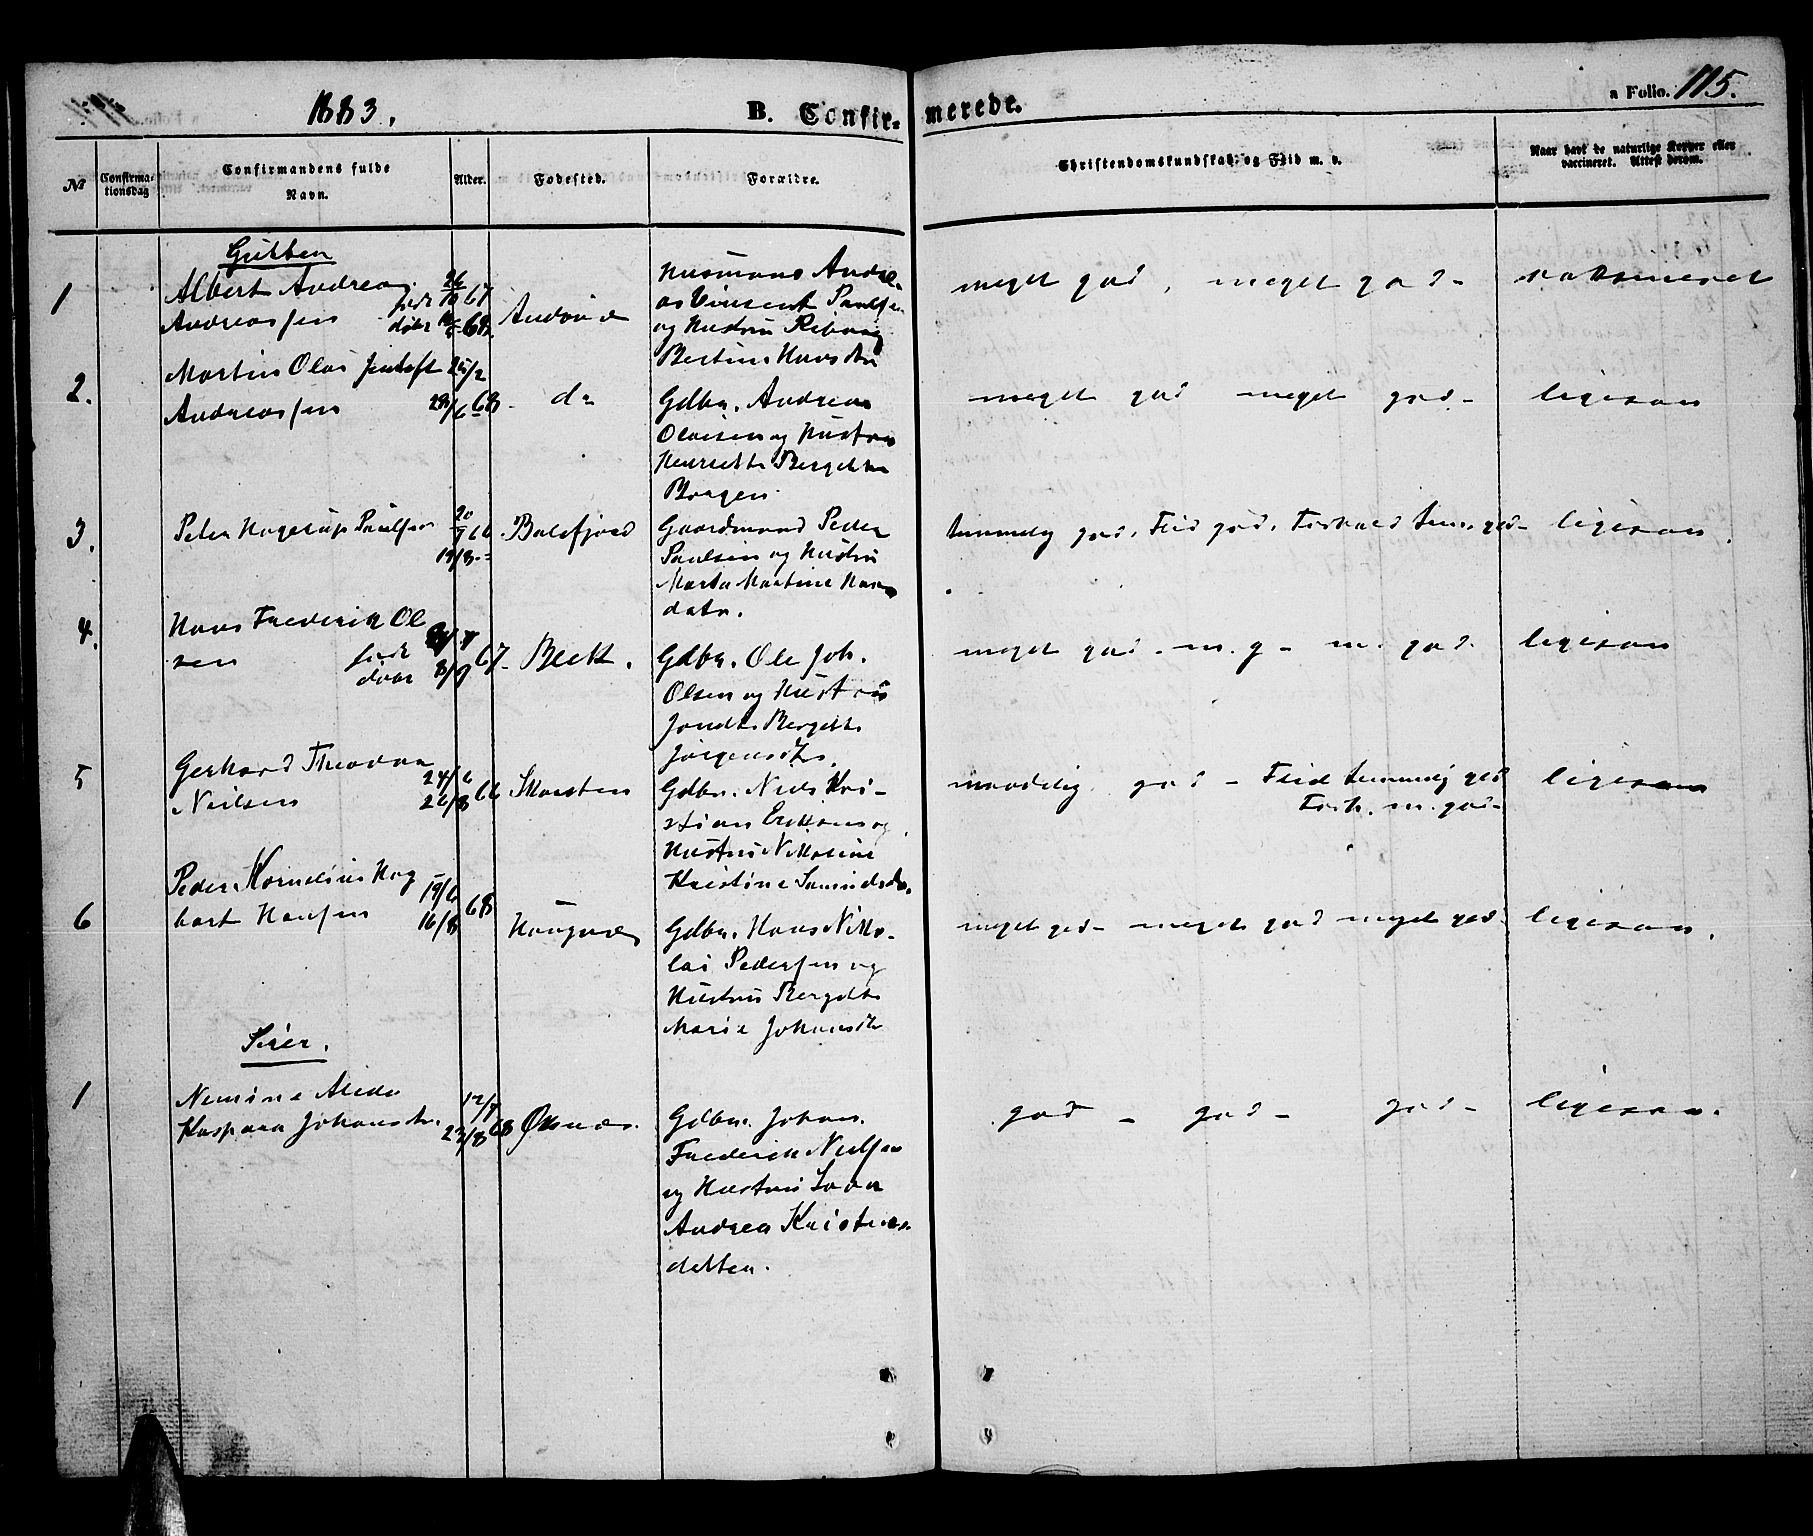 1883.
B. Confir-
merede.
a Folio. 115.
No
Confirma-
tionsdag
Confirmandens fulde
Navn.
Alder.
Fødested.
Forældre.
Christendomskundskab og Flid m. v.
Naar havt de naturlige Kopper eller
vaccineret. Attest derom.
Gutter
1
Albert Andreas
Andreassen
født 26/10 67
døbt 68.
Husmand Andre-
as Vincent Paulsen
og Hustru
meget god, meget god -
2.
Martin Olai
Andreassen
25/2
28/6 68
do
Gdbr. Andreas
Olaisen og Hustru
Henriette Bergitte
meget god meget god -
ligesaa
3.
Peder Hagerup Paulsen
20/7 66
19/8 -
Balsfjord
Gaardmand Peder
Paulsen og Hustru
Marta Martine Hans
datr.
temmelig god, Flid god, Forhold tem. god -
ligesaa.
4.
Hans Frederik Ol
sen
født
døbt 8/9 67
Gdbr. Ole Joh.
Olsen og Hustru
Bergitte
Jørgensdtr.
meget god - m. g - m. god.
ligesaa
5
Gerhard Theodor
Nilsen
24/6
26/8 66
Gdbr. Niels Kri-
stian Eriksen og
Hustru Nikoline
Kristine
maadelig god - Flid temmelig god
Forh. m. god -
ligesaa
6
Peder Kornelius Hag
bart Hansen
19/6
16/8 68
Gdbr. Hans Niko-
lai Pedersen og
Hustru Bergitte
Marie Johansdtr
meget god - meget god meget god
ligesaa.
Piger.
1
Alida
Kaspara Johansdtr.
12/7
23/8 68
Øksnæs.
Gdbr. Johan
Frederik Nielsen
og Hustru
Andrea Kristens-
datter.
god - god - god -
ligesaa.